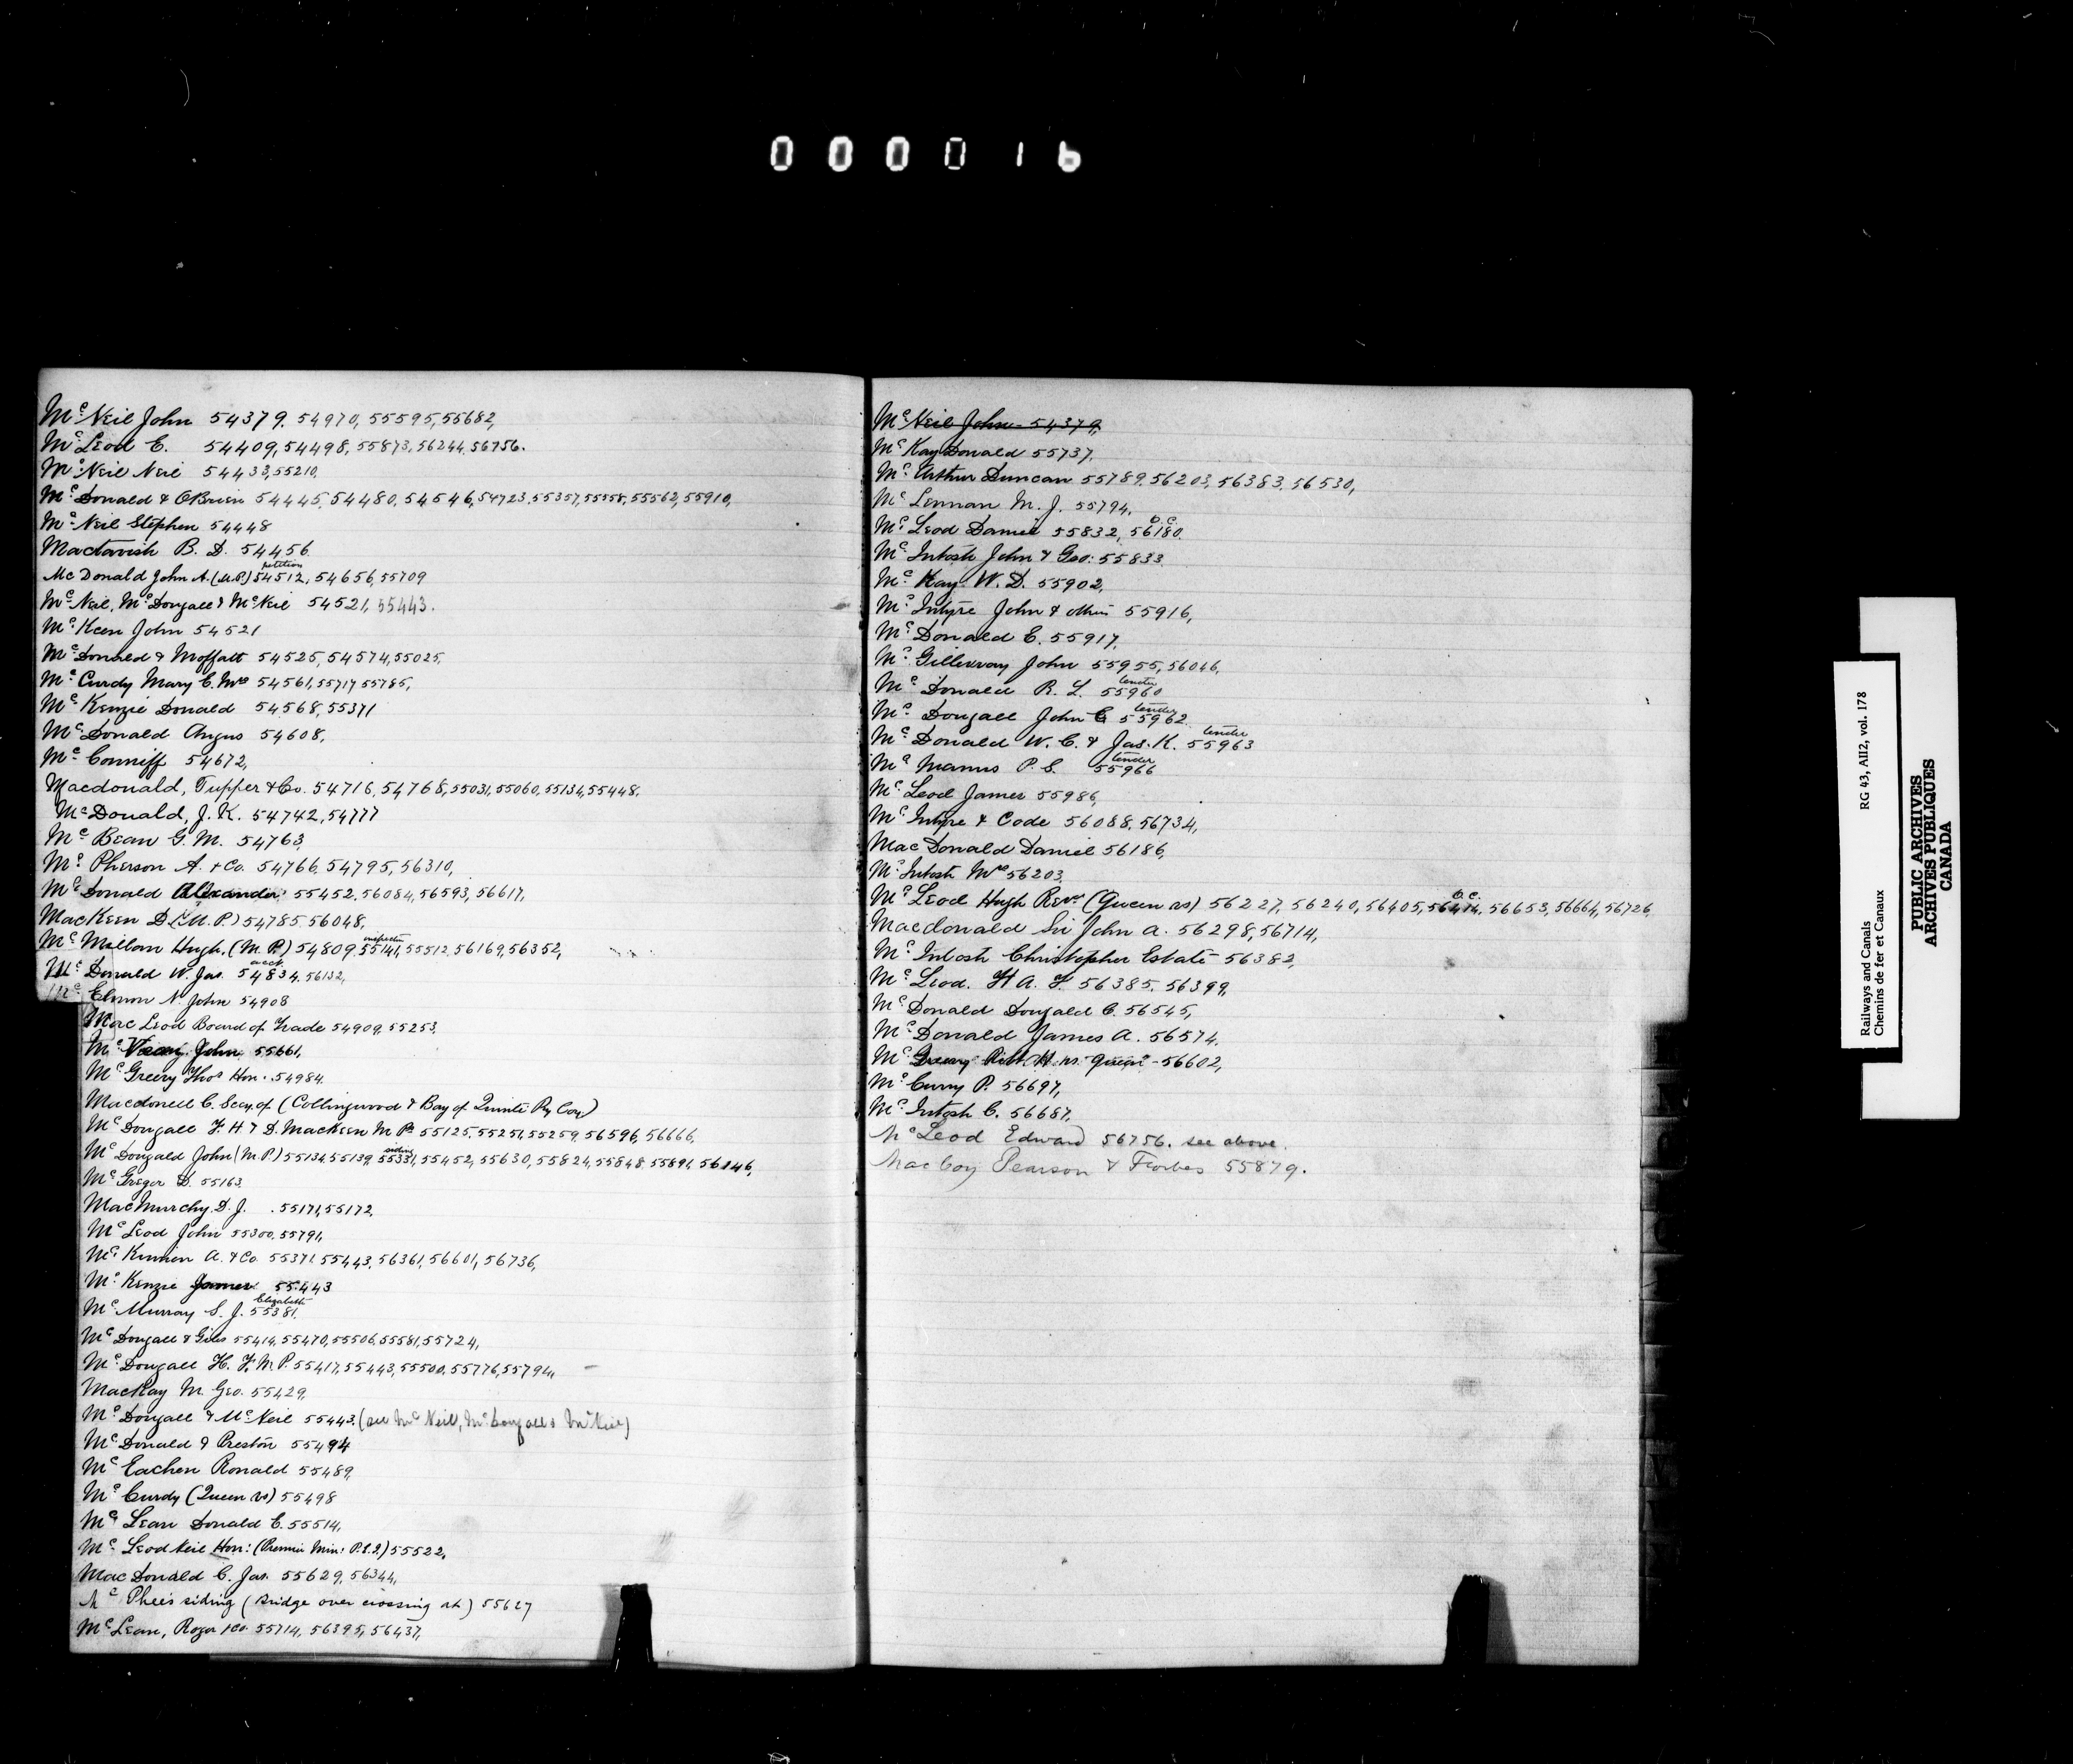 000016
Mc Neil John 54379, 54970, 55595, 55682,
Mc Leod C. 54409, 54498, 55873, 56244, 56756.
Mc Neil Neil 54433, 55210,
Mc Donald & OBrien 54445, 54480, 54546, 54723, 55357, 55558, 55562, 55910,
Mc Neil Stephen 54448
Mactavish B. D. 54456
petition
Mc Donald John A. (M.P.) 54512, 54656, 55709
Mc Neil, Mc Dougall & McNeil 54521, 55443.
Mc Keen John 54521
Mc Donald & Moffatt 54525, 54574, 55025,
Mc Curdy Mary C. Mrs 54561, 55717 55785,
Mc Kenzie Donald 54568, 55371
Mc Donald Angus 54608,
Mc Conniff 54672,
Macdonald, Tupper & Co. 54716, 54768, 55031, 55060, 55134, 55448,
McDonald, J. K. 54742, 54777
Mc Bean G. M. 54763,
Mc Pherson A. & Co. 54766, 54795, 56310,
Mc Donald Alexander 55452, 56084, 56593, 56617,
MacKeen D. (M.P.) 54785 56048,
inspector
Mc Millan Hugh, (M.P.) 54809, 55141, 55512, 56169, 56352,
acct
Mc Donald W. Jas. 54834, 56132,
Mc Elmon N. John 54908
Mac Leod Board of Trade 54909, 55253,
Mc John 55661,
Mc Greevy Thos Hon. 54984
Macdonell C. Secy. of (Collingwood & Bay of Quinte Ry Coy)
Mc Dougall F. H & D. MacKeen M Ps 55125, 55251, 55259, 56596, 56666,
siding
Mc Dougald John (M.P.) 55134, 55139, 55331, 55452, 55630, 55824, 55848, 55891, 56146,
Mc Gregor D. 55163
MacMurchy D. J. 55171, 55172,
Mc Leod John 55300, 55791,
Mc Kinnon A. & Co. 55371, 55443, 56361, 56601, 56736,
Mc Kenzie James 55443
Elizabeth
Mc Murray S. J. 55381,
Mc Dougall & Giles 55414, 55470, 55506, 55581, 55724,
Mc Dougall H. F. M.P. 55417, 55443, 55500, 55776, 55794,
MacKay M. Geo. 55429,
Mc Dougall & McNeil 55443, (see McNeil, McDougall & McNeil)
Mc Donald & Preston 55494
Mc Eachen Ronald 55489,
Mc Curdy (Queen vs) 55498
Mc Lean Donald C. 55514,
Mc Leod Neil Hon: (Premier Min: P.E.I.) 55522,
Mac Donald C. Jas. 55629, 56344,
Mc Phee's siding (Bridge over crossing at) 55627
Mc Lean, Roger & Co. 55714, 56395, 56437,
Mc Neil John - 54379,
Mc Kay Donald 55737,
Mc Arthur Duncan 55789, 56203, 56383, 56530,
Mc Lennan M. J. 55794,
B. C.
Mc Leod Daniel 55832, 56180,
Mc Intosh John & Geo: 55833
Mc Kay W. D. 55902,
Mc Intyre John & others 55916,
Mc Donald C. 55917,
Mc Gillivray John 55955, 56046,
tender
Mc Donald R. L. 55960
tender
Mc Dougall John C 55962
tender
Mc Donald W. C. & Jas. K. 55963
tender
Mc Manus P. S. 55966
Mc Leod James 55986,
Mc Intyre & Code 56088, 56734,
Mac Donald Daniel 56186,
Mc Intosh Mrs 56203
B. C.
Mc Leod Hugh Revd (Queen vs) 56227, 56240, 56405, 56474, 56653, 56664, 56726,
Macdonald Sir John A. 56298, 56714,
Mc Intosh Christopher Estate 56382,
Mc Leod. H A. F. 56385, 56399,
Mc Donald Dougald C. 56545,
Mc Donald James A. 56574,
Mc Greevy Robt H. vs. Queen - 56602,
Mc Curry P. 56697,
Mc Intosh C. 56687,
Mc Leod Edward 56756. see above.
MacCoy Pearson & Forbes 55879.
Railways and Canals RG 43, AII2, vol. 178
Chemins de fer et Canaux
PUBLIC ARCHIVES
ARCHIVES PUBLIQUES
CANADA